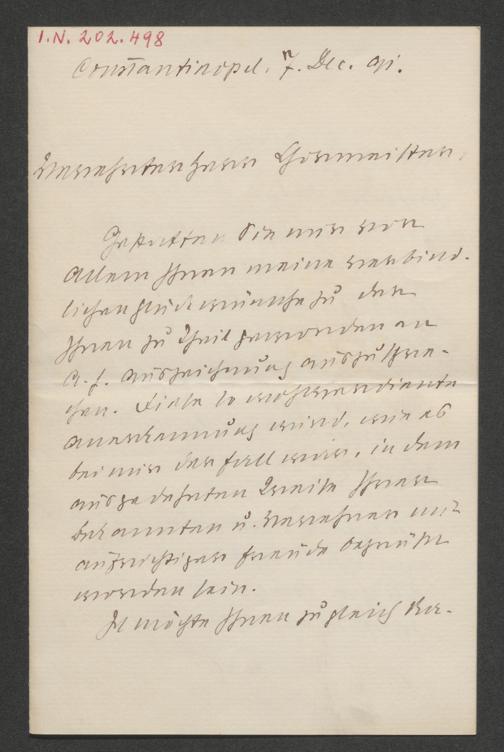 I.N. 202.498
Constantinopel, 7. Dec. 91.
Verehrter Herr Chormeister,
Gestatten Sie mir vor
Allem Ihnen meine verbind-
lichen Glückwünsche zu der
Ihnen zu Theil gewordenen
a. h. Auszeichnung auszuspre-
chen. Diese so wohlverdiente
Anerkennung wird, wie es
bei mir der Fall war, in dem
ausgedehnten Kreise Ihrer
Bekannten u. Verehrer mit
aufrichtiger Freude begrüßt
worden sein.
Ich möchte Ihnen zugleich